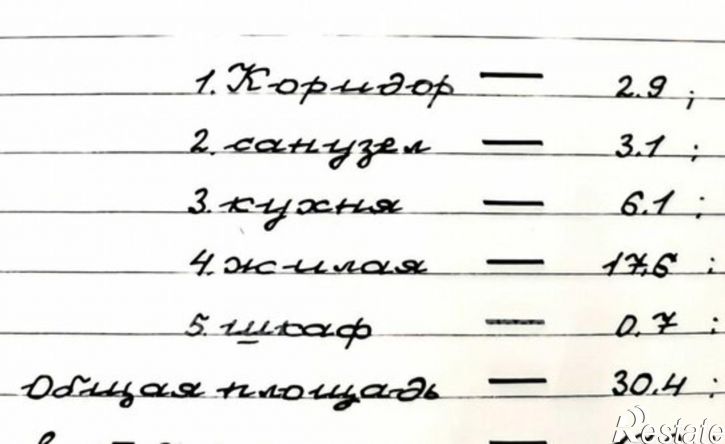 1. Коридор — 2.9 ;
2. санузел — 3.1 ;
3. кухня — 6.1 ;
4. жилая — 17,6 ;
5. шкаф — 0.7 ;
Общая площадь — 30.4 ;
Restate